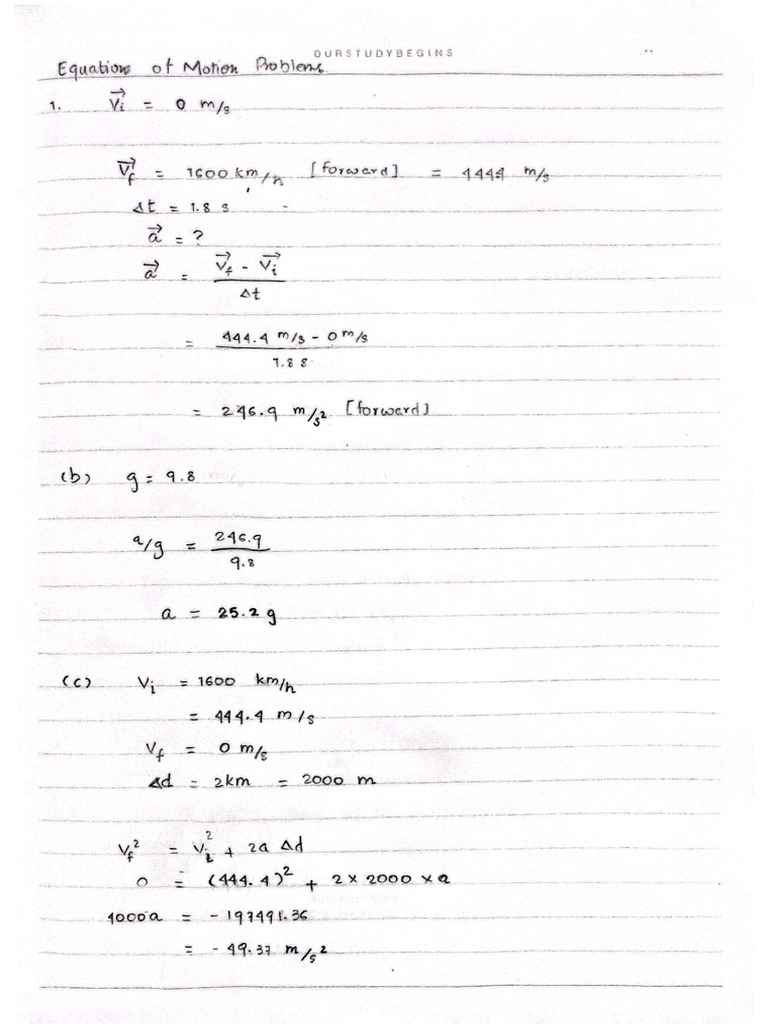 OURSTUDYBEGINS
Equations of Motion Problems.
1. V⃗i = 0 m/s
V⃗f = 1600 km/h [forward] = 4444 m/s
Δt = 1.8 s
a⃗ = ?
a⃗ = (V⃗f - V⃗i) / Δt
= (444.4 m/s - 0 m/s) / 1.8 s
= 246.9 m/s² [forward]
(b) g = 9.8
a/g = 246.9 / 9.8
a = 25.2 g
(c) Vi = 1600 km/h
= 444.4 m/s
Vf = 0 m/s
Δd = 2km = 2000 m
Vf² = Vi² + 2a Δd
0 = (444.4)² + 2 x 2000 x a
4000a = - 197491.36
= - 49.37 m/s²